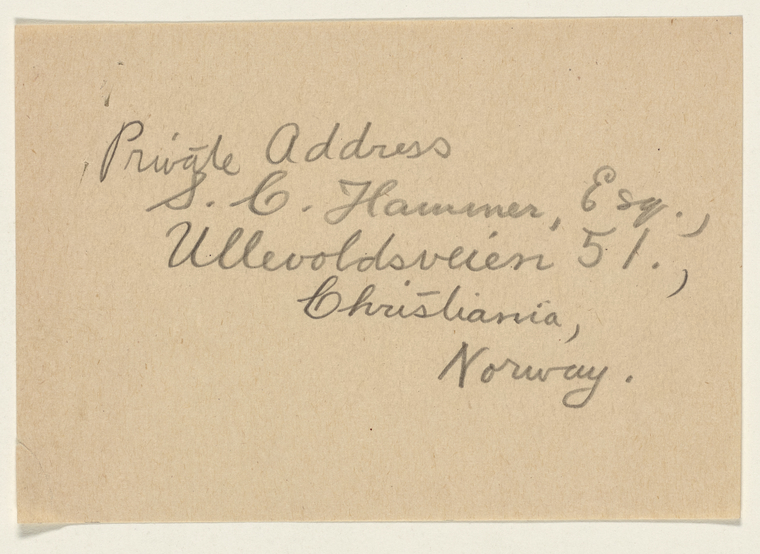 Private Address
S. C. Hammer, Esq.,
Ullevoldsveien 51.,
Christiania,
Norway.